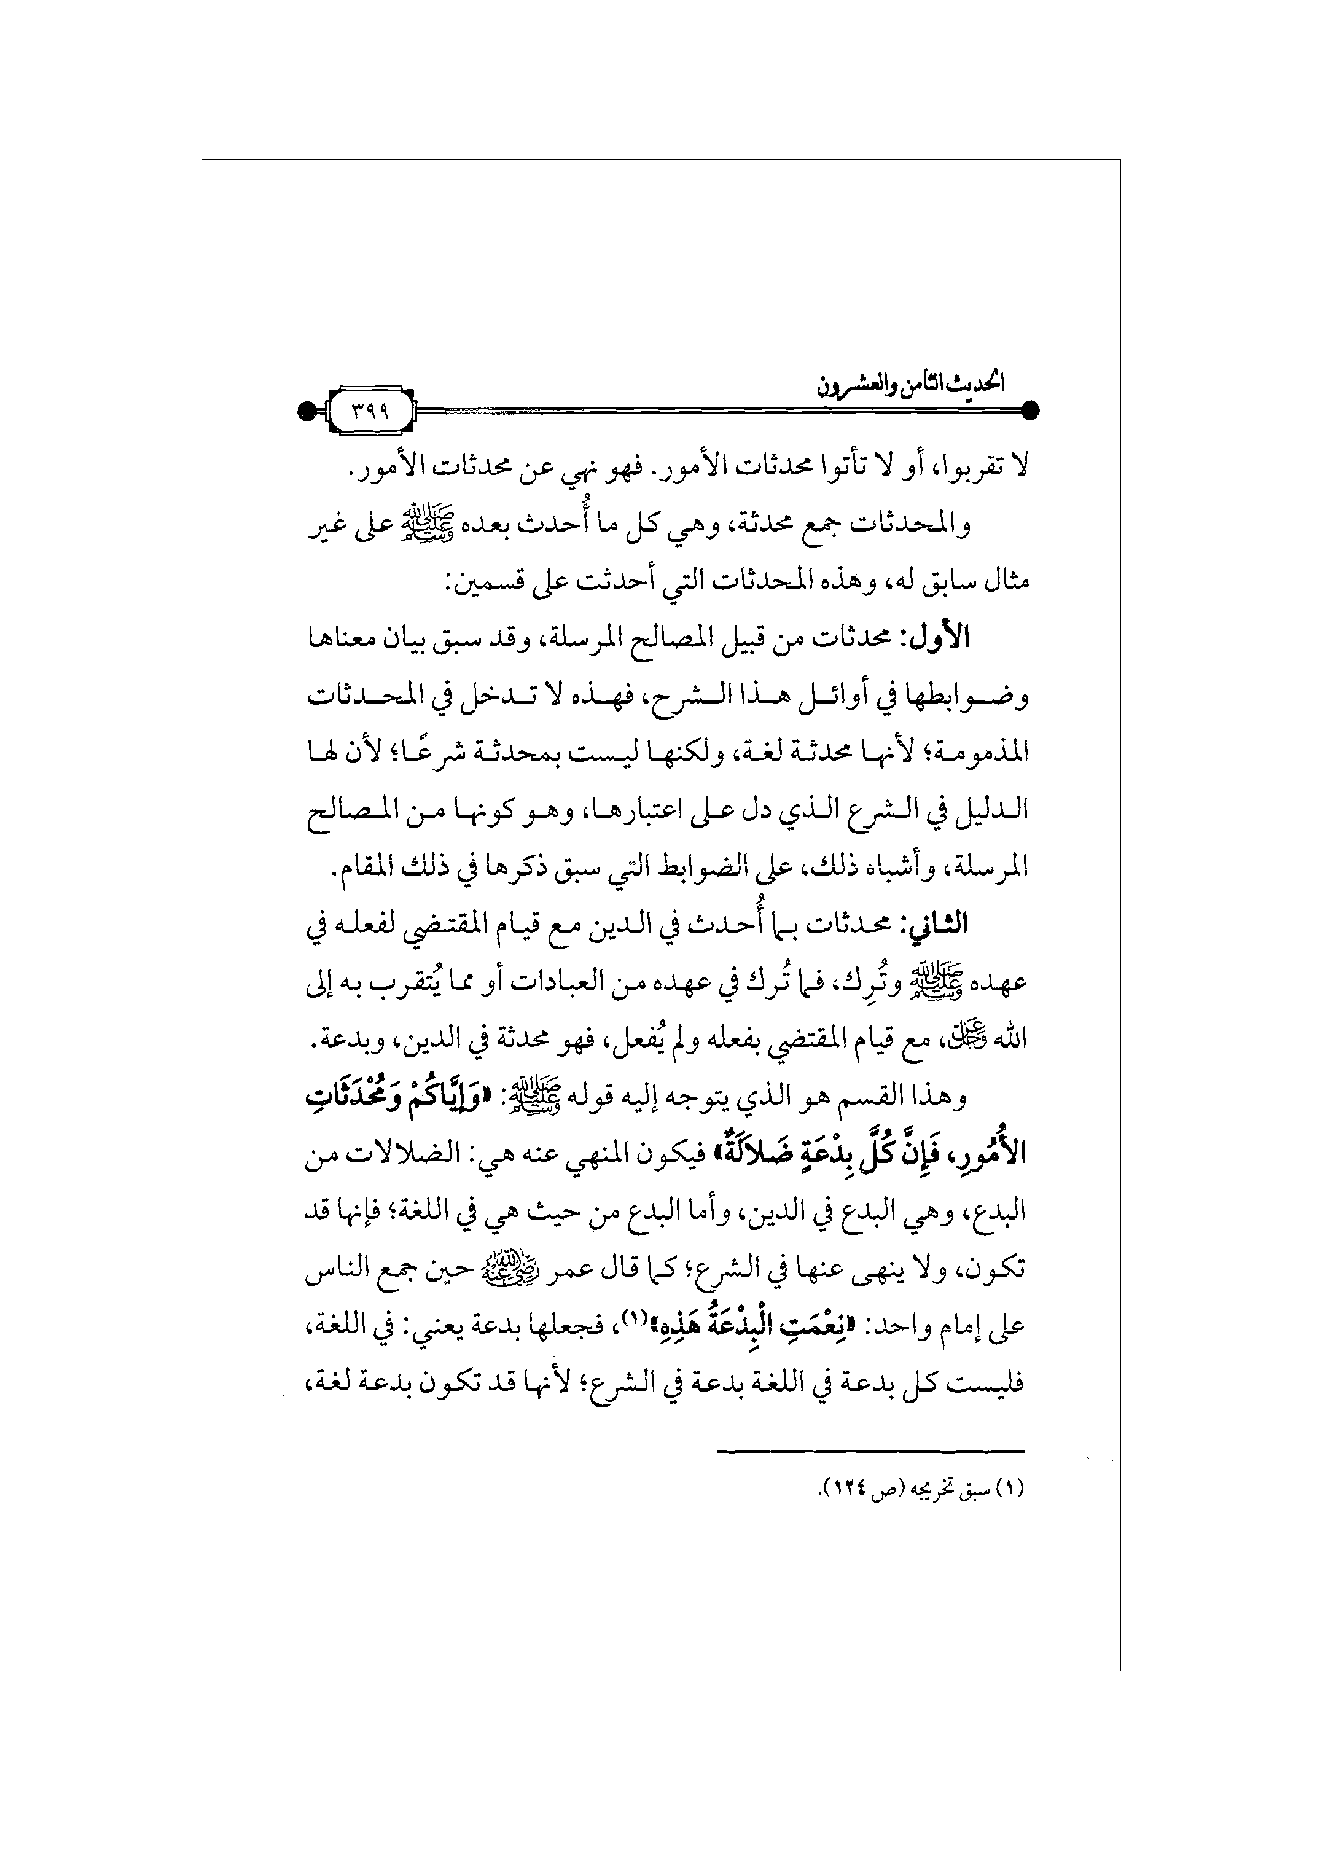 الحديث الثامن والعشرون
٣٩٩
لا تقربوا، أو لا تأتوا محدثات الأمور. فهو نهي عن محدثات الأمور.
والمحدثات جمع محدثة، وهي كل ما أُحدث بعده ﷺ على غير
مثال سابق له، وهذه المحدثات التي أحدثت على قسمين:
الأول: محدثات من قبيل المصالح المرسلة، وقد سبق بيان معناها
وضوابطها في أوائل هذا الشرح، فهذه لا تدخل في المحدثات
المذمومة؛ لأنها محدثة لغة، ولكنها ليست بمحدثة شرعًا؛ لأن لها
الدليل في الشرع الذي دل على اعتبارها، وهو كونها من المصالح
المرسلة، وأشباه ذلك، على الضوابط التي سبق ذكرها في ذلك المقام.
الثاني: محدثات بما أُحدث في الدين مع قيام المقتضي لفعله في
عهده ﷺ وتُرِك، فما تُرك في عهده من العبادات أو مما يُتقرب به إلى
الله عز وجل، مع قيام المقتضي بفعله ولم يُفعل، فهو محدثة في الدين، وبدعة.
وهذا القسم هو الذي يتوجه إليه قوله ﷺ: «وَإِيَّاكُمْ وَمُحْدَثَاتِ
الأُمُورِ، فَإِنَّ كُلَّ بِدْعَةٍ ضَلَالَةٌ» فيكون المنهي عنه هي: الضلالات من
البدع، وهي البدع في الدين، وأما البدع من حيث هي في اللغة؛ فإنها قد
تكون، ولا ينهى عنها في الشرع؛ كما قال عمر رضي الله عنه حين جمع الناس
على إمام واحد: «نِعْمَتِ الْبِدْعَةُ هَذِهِ»(١)، فجعلها بدعة يعني: في اللغة،
فليست كل بدعة في اللغة بدعة في الشرع؛ لأنها قد تكون بدعة لغة،
(١) سبق تخريجه (ص ١٢٤).